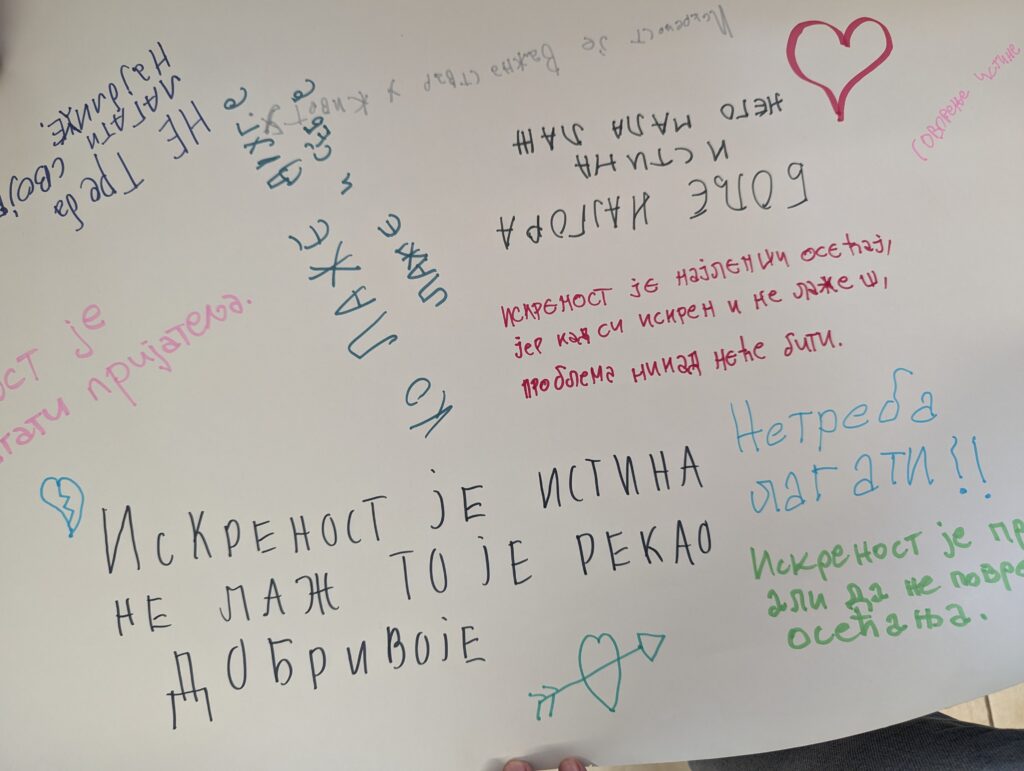 НЕ Треба
ЛАГАТИ СВОЈЕ
НАЈБЛИЖЕ.
Искреност је Важна ствар у живот у
Говорење истине
БОЉЕ НАЈГОРА
ИСТИНА
НЕГО МАЛА ЛАЖ
КО ЛАЖЕ
ЛАЖЕ и себе
ост је
гати пријатеља.
искреност је најлепши осећај,
јер кад си искрен и не лажеш,
проблема никад неће бити.
Нетреба
лагати!!
Искреност је ИСТИНА
НЕ ЛАЖ ТО ЈЕ РЕКАО
ДОБРИВОЈЕ
Искреност је пр
али да не повре
осећања.